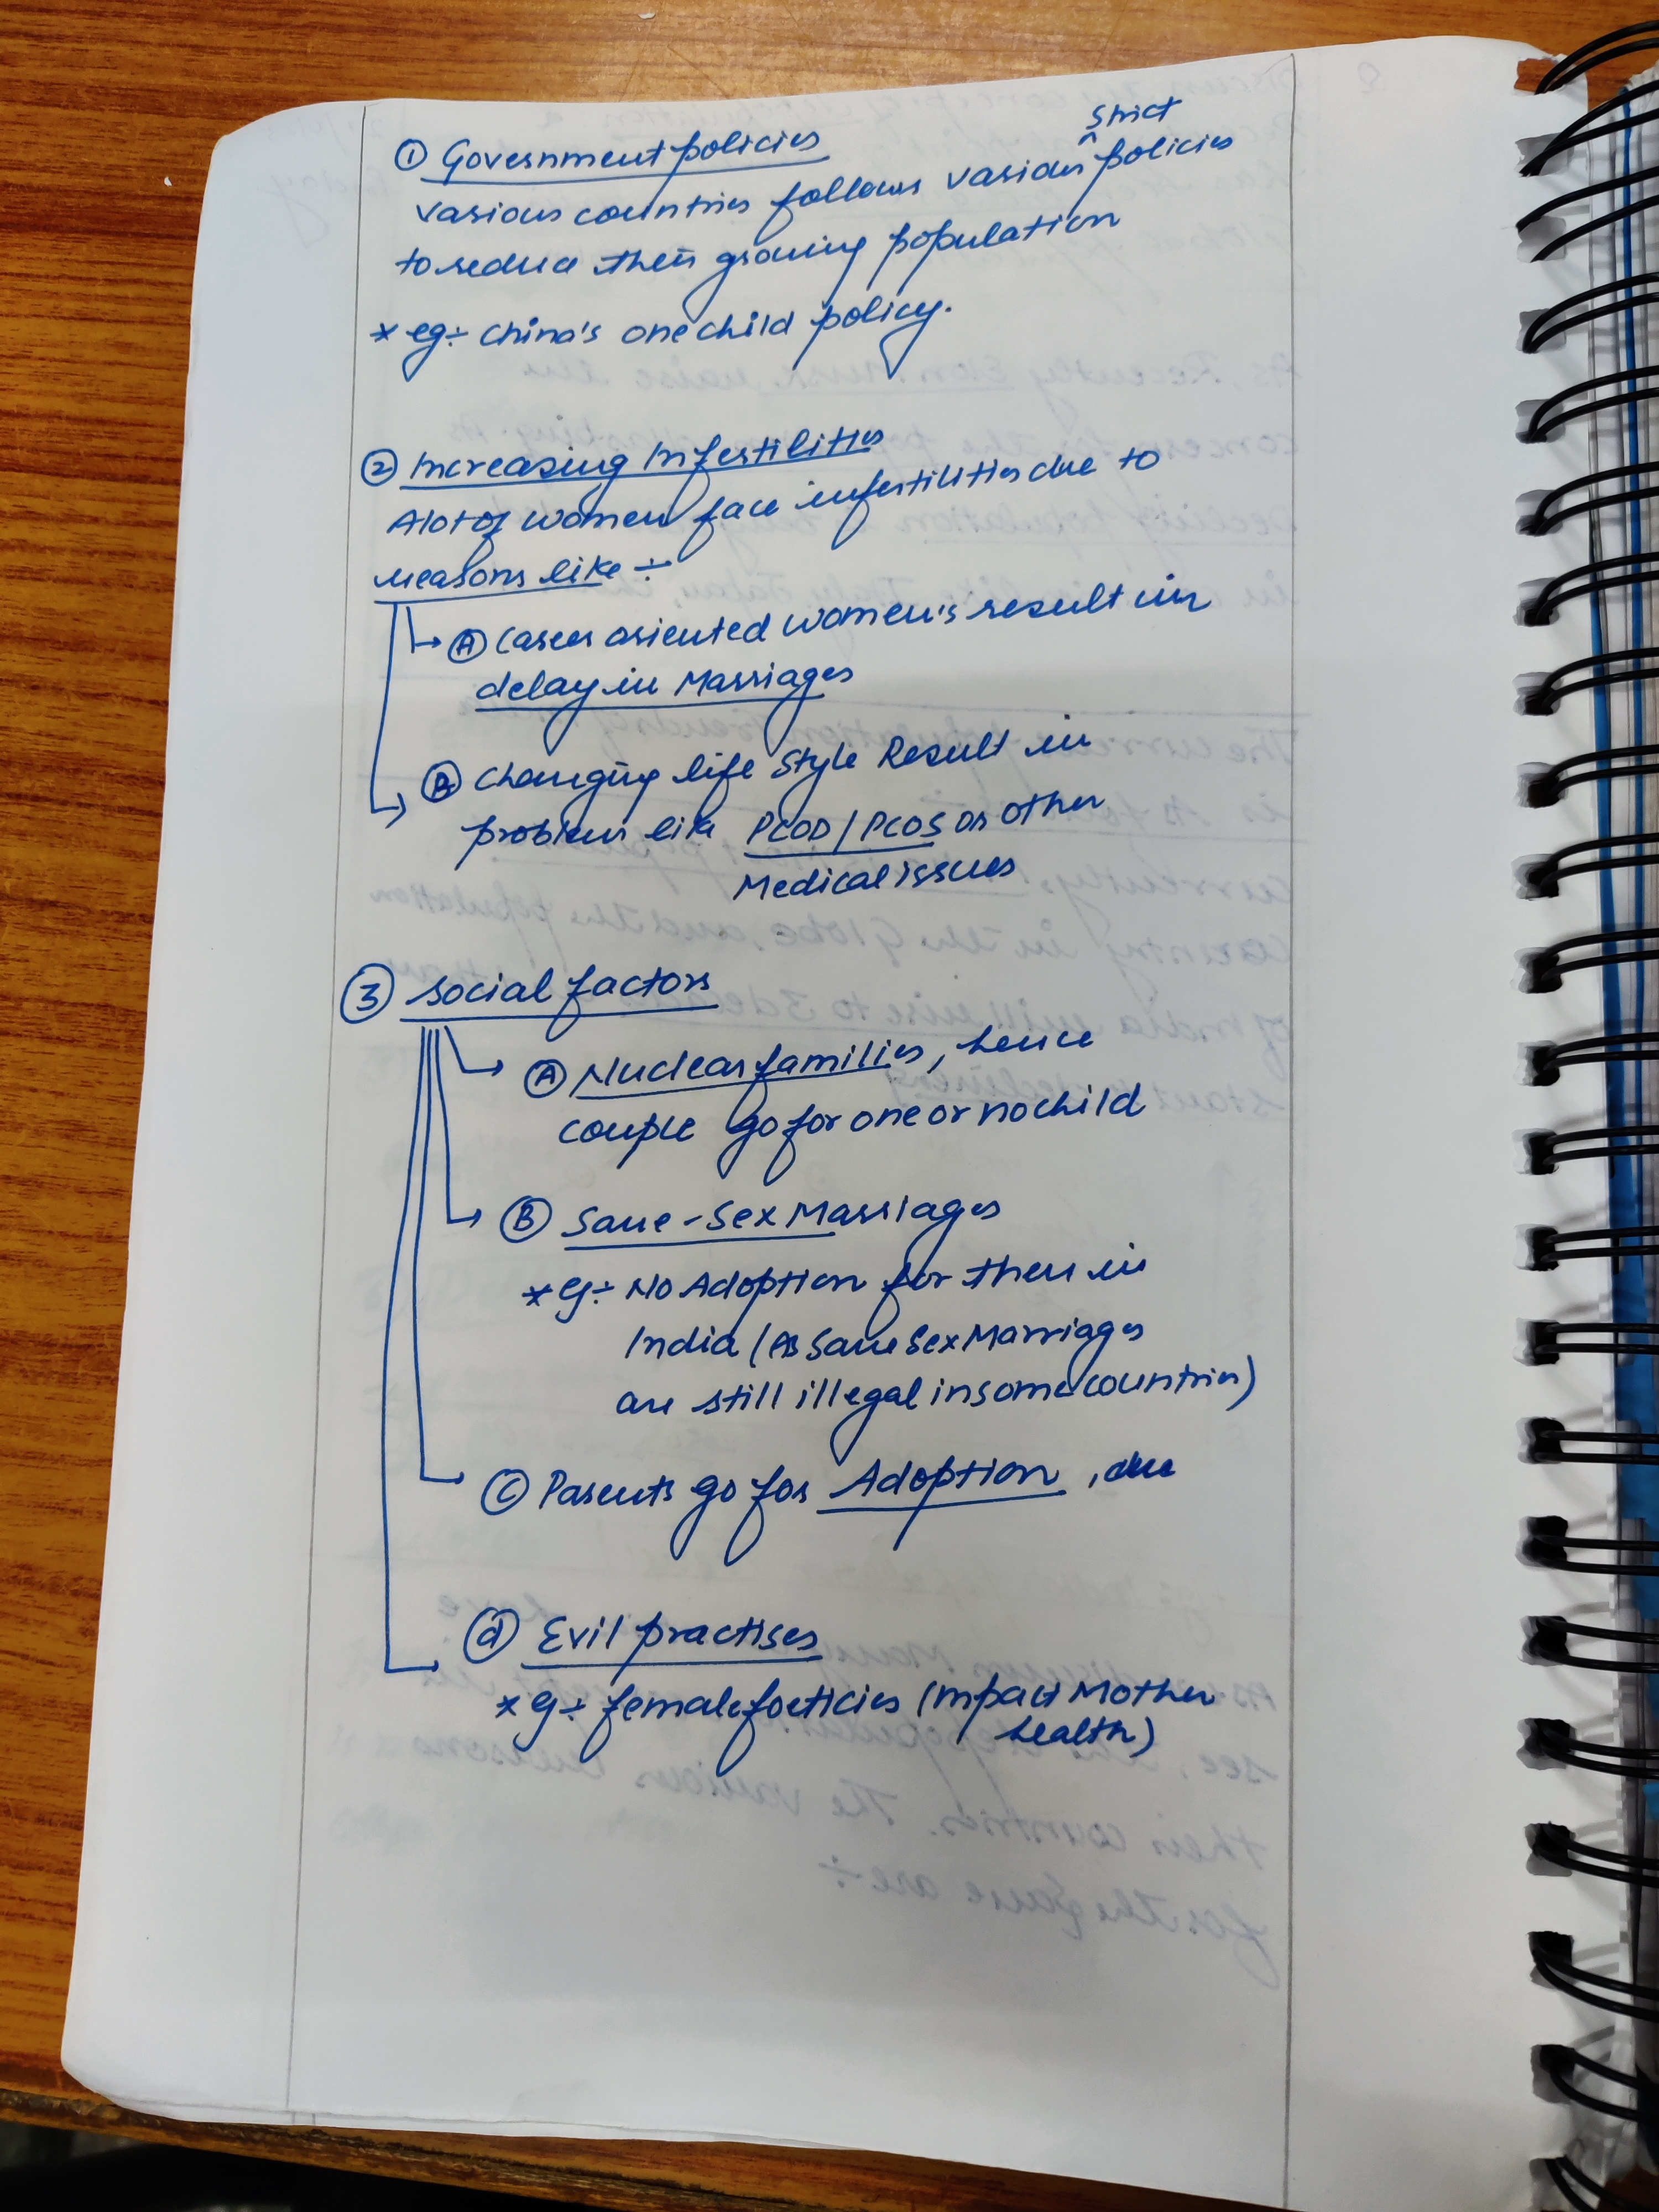 ① Government policies
strict
various countries follows various ^ policies
to reduce their growing population
* eg ÷ China's one child policy.
② Increasing Infertilities
A lot of women face infertilities due to
reasons like ÷
Ⓐ Career oriented women's result in
delay in Marriages
Ⓑ Changing life style Result in
problems like PCOD / PCOS or other
Medical issues
③ Social factors
Ⓐ Nuclear families, hence
couple go for one or no child
Ⓑ Same-Sex Marriages
* eg ÷ No Adoption for them in
India (As Same Sex Marriages
are still illegal in some countries)
Ⓒ Parents go for Adoption, due
ⓓ Evil practises
* eg ÷ female foeticies (Impact Mother
health)